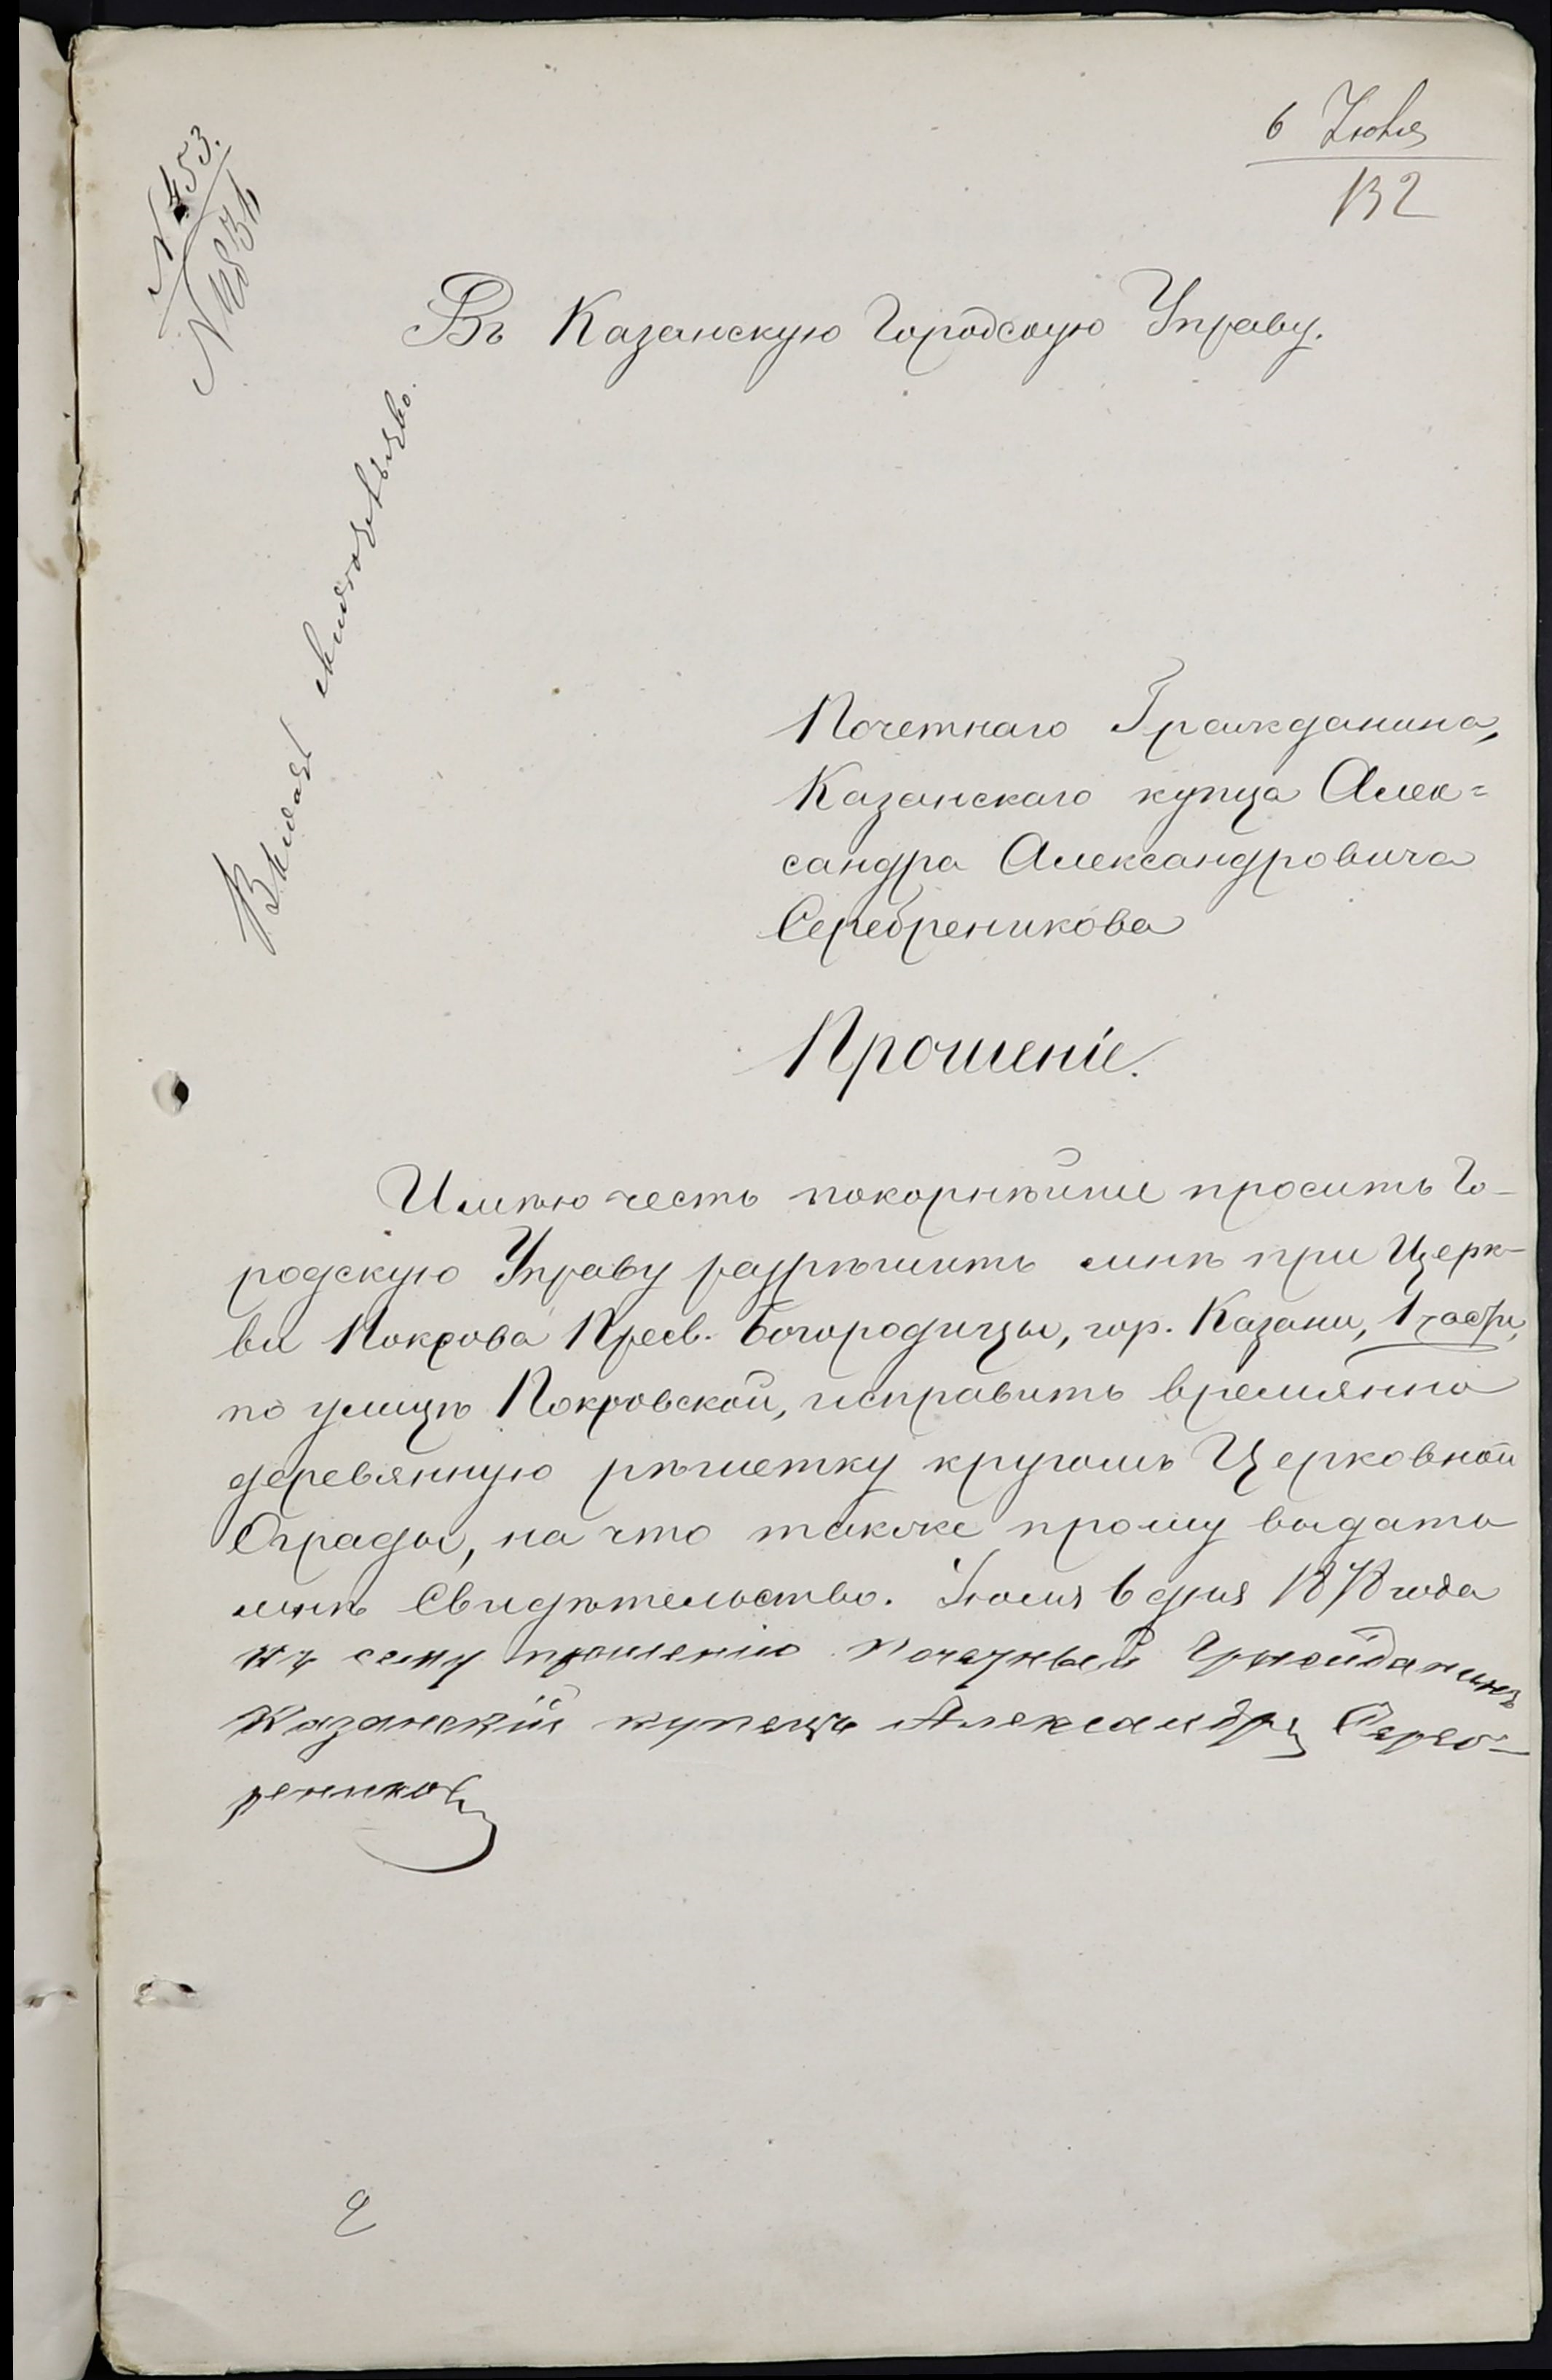 6 Июля
132
№ 453.
Въ Казанскую Городскую Управу.
Почетнаго Гражданина,
Казанскаго купца Алек=
сандра Александровича
Серебреникова
Прошеніе.
Имѣю честь покорнѣйше просить Го-
родскую Управу разрѣшить мнѣ при Церк-
ви Покрова Пресв. Богородицы, гор. Казани, 1 части,
по улицѣ Покровской, исправить времянно
деревянную рѣшетку кругомъ Церковной
Ограды, на что также прошу выдать
мнѣ Свидѣтельство. Іюля 6 дня 1878 года
Къ сему прошенію Почетный Гражданинъ
Казанскій купецъ Александръ Сереб-
рениковъ